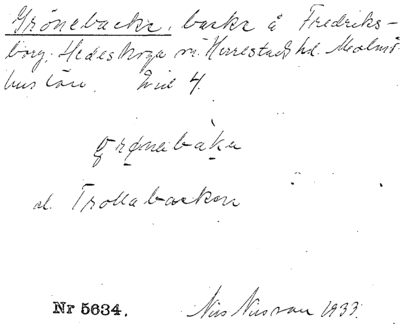 Grönebacke, backe å Fredriks-
borg, Hedeskoga sn. Herrestads hd. Malmö-
hus län. 4.
grønebàka
el. Trollabacken
Nr 5634. Nils 1933.